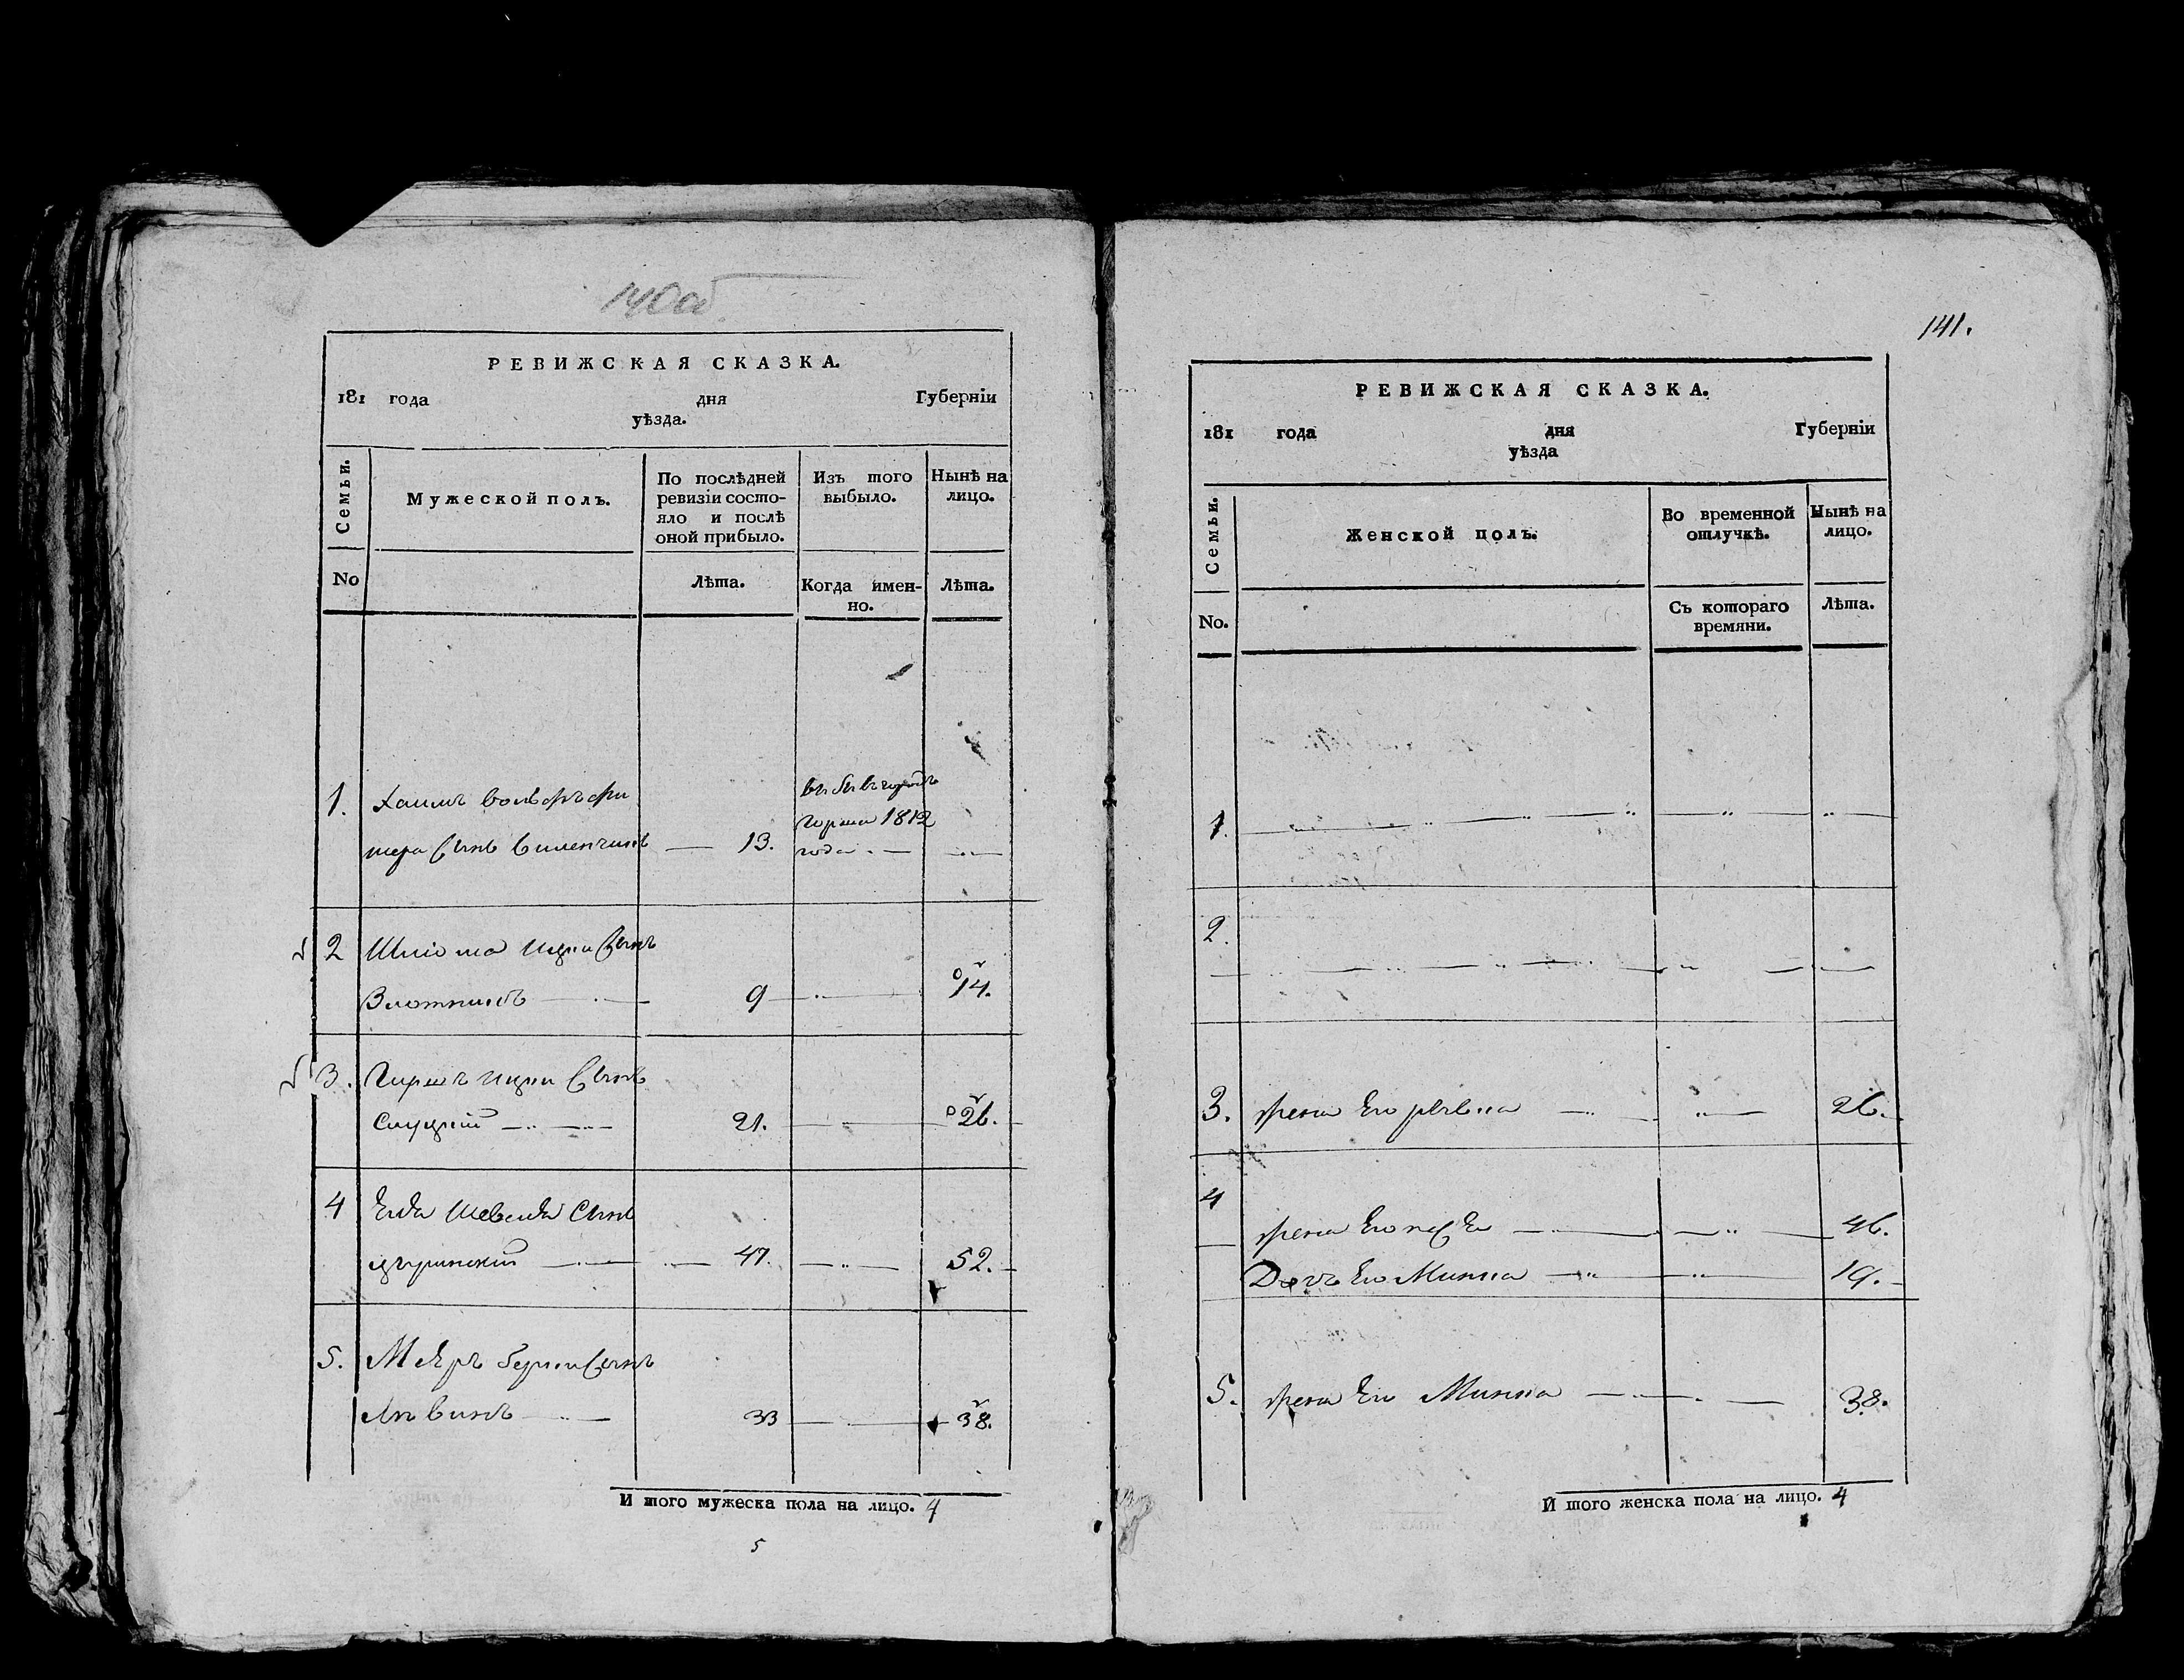 140об
РЕВИЖСКАЯ СКАЗКА.
181 года дня Губерніи
уѣзда.
Семьи.
Мужеской полъ.
По послѣдней ревизіи состо-
яло и послѣ оной прибыло.
Изъ того выбыло.
Нынѣ на лицо.
No
Лѣта.
Когда имен-
но.
Лѣта.
1. Хаимъ
сынъ 13. 1812
года
2 Шліома Ицки сынъ
9 14.
3. Гиршъ Ицки сынъ
Слуцкій 21. 26.
4 сынъ
47. 52.
5. Меэръ Берки сынъ
Левинъ 33 38.
И того мужеска пола на лицо. 4
5
141.
РЕВИЖСКАЯ СКАЗКА.
181 года дня Губерніи
уѣзда
Семьи.
Женской полъ.
Во временной отлучкѣ.
Нынѣ на лицо.
No.
Съ котораго времяни.
Лѣта.
1.
2.
3. жена Его 26.
4
жена Его 46.
Дочь Его Минна 19.
5. жена Его Минна 38.
И того женска пола на лицо. 4